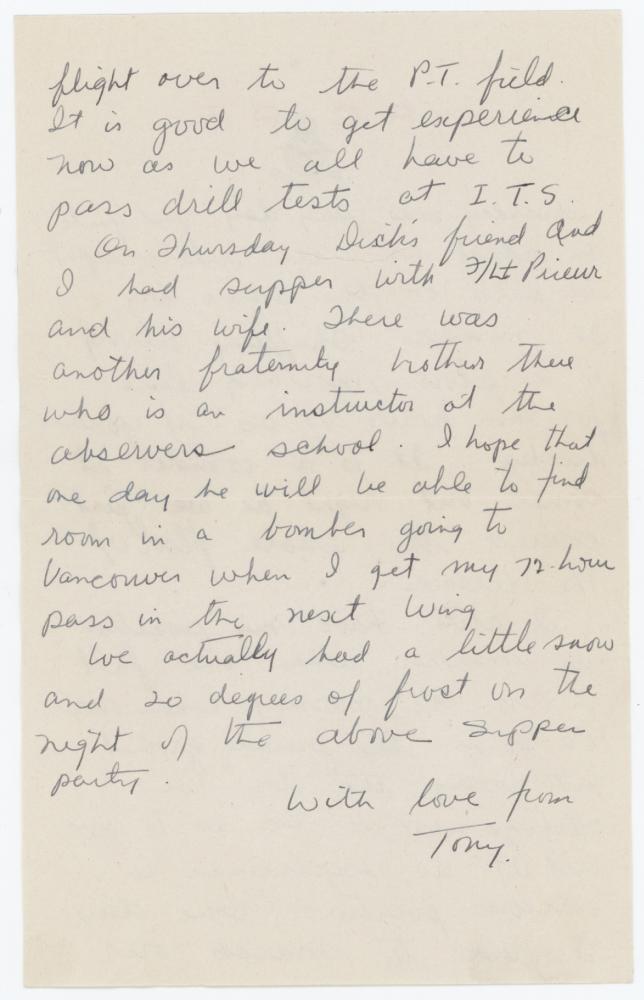 flight over to the P.T. field.
It is good to get experience
now as we all have to
pass drill tests at I.T.S.
On Thursday Dick's friend and
I had supper with F/Lt Prieur
and his wife. There was
another fraternity brother there
who is an instructor at the
observers school. I hope that
one day he will be able to find
room in a bomber going to
Vancouver when I get my 72-hour
pass in the next Wing
We actually had a little snow
and 20 degrees of frost on the
night of the above supper
party.
With love from
Tony.